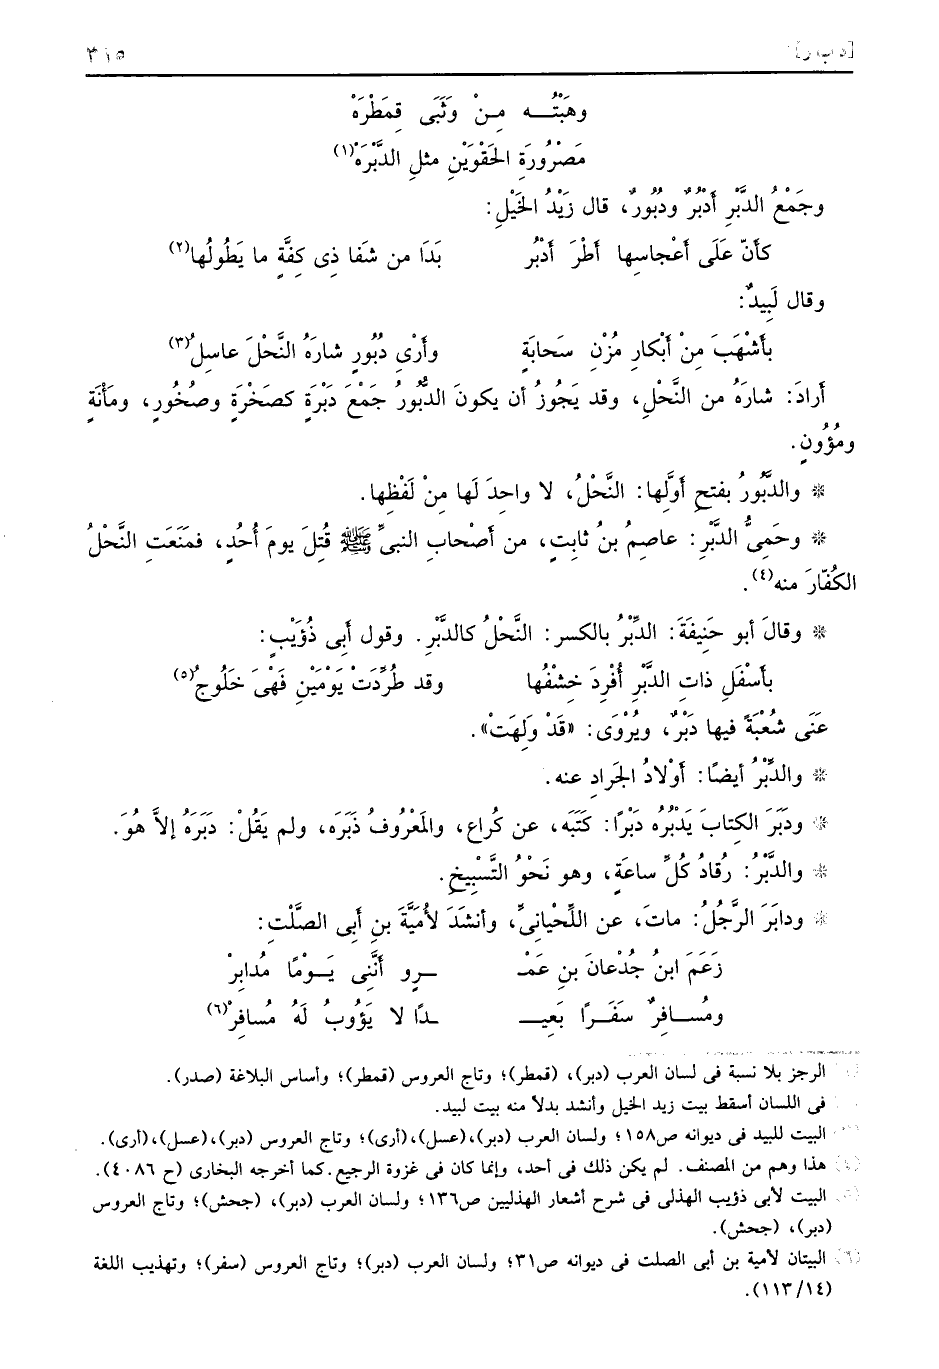 [د ب ر] ٣١٥
وهَبْتُــه مِـنْ وَثَبَى قِمَطْرَهْ
مَصْرُورَةِ الحَقْوَيْنِ مثلِ الدَّبْرَهْ(١)
وجَمْعُ الدَّبْرِ أَدْبُرٌ ودُبُورٌ، قال زَيْدُ الخَيْلِ:
كأَنّ عَلَى أعْجاسِها أَطْرَ أَدْبُرٍ بَدَا من شَفا ذِى كِفَّةٍ ما يَطُولُها(٢)
وقال لَبِيدٌ:
بأَشْهَبَ مِنْ أبْكارِ مُزْنِ سَحابَةٍ وأَرْىِ دُبُورٍ شارَهُ النَّحْلَ عاسِلُ(٣)
أرادَ: شارَهُ من النَّحْلِ، وقد يَجُوزُ أن يكونَ الدُّبُورُ جَمْعَ دَبْرَةٍ كصَخْرَةٍ وصُخُورٍ، ومَأْنَةٍ
ومُؤُونٍ.
* والدَّبُورُ بفتحِ أوَّلِها: النَّحْلُ، لا واحِدَ لَها مِنْ لَفْظِها.
* وحَمِىُّ الدَّبْرِ: عاصِمُ بنُ ثابِتٍ، من أصْحابِ النبىِّ ﷺ قُتِلَ يومَ أُحُدٍ، فمَنَعَت النَّحْلُ
الكُفّارَ منه(٤).
* وقالَ أبو حَنِيفَةَ: الدِّبْرُ بالكسر: النَّحْلُ كالدَّبْرِ. وقول أبِى ذُؤَيْبٍ:
بأَسْفَلِ ذاتِ الدَّبْرِ أُفْرِدَ خِشْفُها وقد طُرِّدَتْ يَوْمَيْنِ فَهْىَ خَلُوجُ(٥)
عَنَى شُعْبَةً فيها دَبْرٌ، ويُرْوَى: «قَدْ وَلِهَتْ».
* والدِّبْرُ أيضًا: أوْلادُ الجَرادِ عنه.
* ودَبَرَ الكتابَ يَدْبُرُه دَبْرًا: كَتَبَه، عن كُراع، والمَعْرُوفُ ذَبَرَه، ولم يَقُلْ: دَبَرَهُ إلاَّ هُوَ.
* والدَّبْرُ: رُقادُ كُلِّ ساعَةٍ، وهو نَحْوُ التَّسْبِيخِ.
* ودابَرَ الرَّجُلُ: ماتَ، عن اللِّحْيانِىِّ، وأنشَدَ لأُمَيَّةَ بنِ أبِى الصَّلْتِ:
زَعَمَ ابنُ جُدْعانَ بنِ عَمْـ ـرٍو أَنَّنِى يَـوْمًا مُدابِرْ
ومُســافِرٌ سَفَـرًا بَعِيــ ـدًا لا يَؤُوبُ لَهُ مُسافِرْ(٦)
الرجز بلا نسبة فى لسان العرب (دبر)، (قمطر)؛ وتاج العروس (قمطر)؛ وأساس البلاغة (صدر).
فى اللسان أسقط بيت زيد الخيل وأنشد بدلاً منه بيت لبيد.
البيت للبيد فى ديوانه ص١٥٨؛ ولسان العرب (دبر)،(عسل)،(أرى)؛ وتاج العروس (دبر)،(عسل)،(أرى).
(٤) هذا وهم من المصنف. لم يكن ذلك فى أحد، وإنما كان فى غزوة الرجيع.كما أخرجه البخارى (ح ٤٠٨٦).
(٥) البيت لأبى ذؤيب الهذلى فى شرح أشعار الهذليين ص١٣٦؛ ولسان العرب (دبر)، (جحش)؛ وتاج العروس
(دبر)، (جحش).
(٦) البيتان لأمية بن أبى الصلت فى ديوانه ص٣١؛ ولسان العرب (دبر)؛ وتاج العروس (سفر)؛ وتهذيب اللغة
(١١٣/١٤).